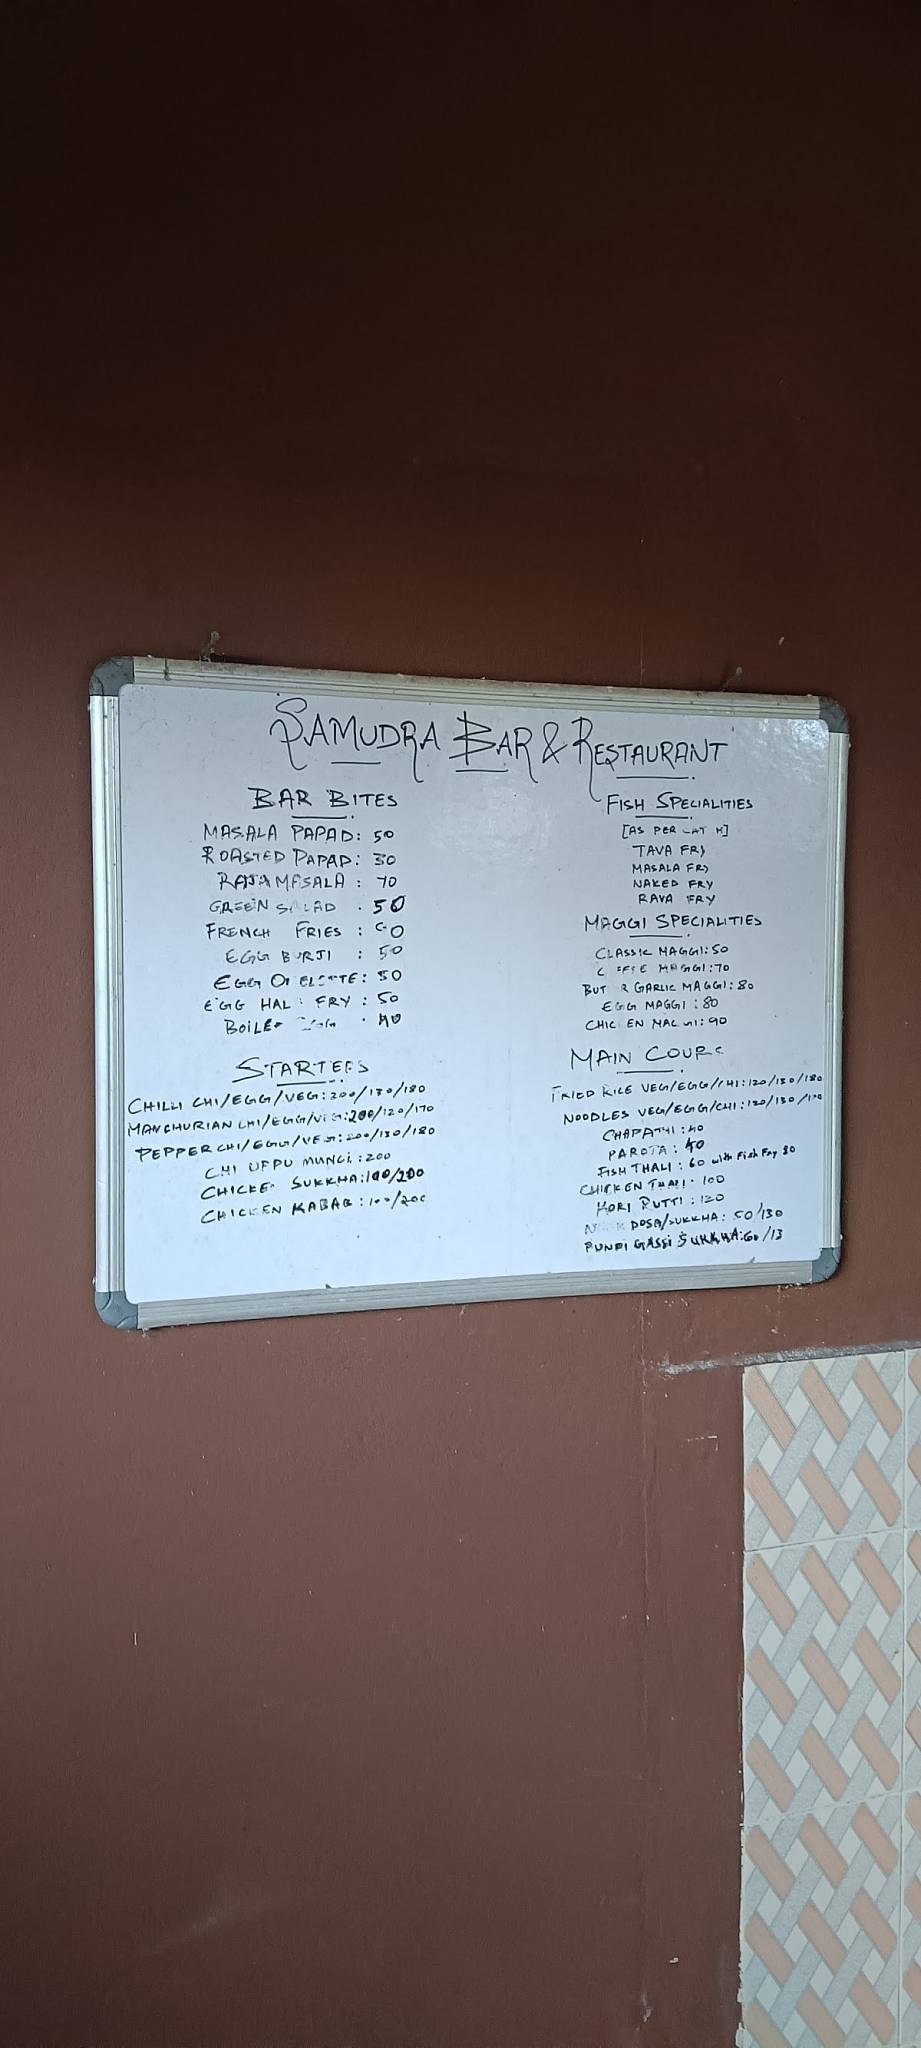 SAMUDRA BAR & RESTAURANT
BAR BITES
MASALA PAPAD: 50
ROASTED PAPAD: 30
RAJAMASALA : 70
GREEN SALAD : 50
FRENCH FRIES :
EGG BURJI : 50
EGG : 50
EGG HAL FRY : 50
: 40
STARTERS
CHILLI CHI/EGG/VEG: 200/130/180
MANCHURIAN CHI/EGG/VEG: 200/120/170
PEPPER CHI/EGG/VEG: 200/130/180
CHI UPPU : 200
CHICKE SUKKHA: 100/200
CHICKEN KABAB : 100/200
FISH SPECIALITIES
[AS PER
TAVA FRY
MASALA FRY
NAKED FRY
RAVA FRY
MAGGI SPECIALITIES
CLASSIC MAGGI: 50
MAGGI: 70
GARLIC MAGGI: 80
EGG MAGGI : 80
CHIC EN MAGGI: 90
MAIN COURS
FRIED RICE VEG/EGG/CHI: 120/130/180
NOODLES VEG/EGG/CHI: 120/130/170
CHAPATHI : 40
PAROTA : 40
FISH THALI : 60 with Fish Fry 80
CHICKEN THALI : 100
KORI RUTTI : 120
DOSA/SUKKHA : 50/130
PUNDI GASSI SUKKHA: 60/13